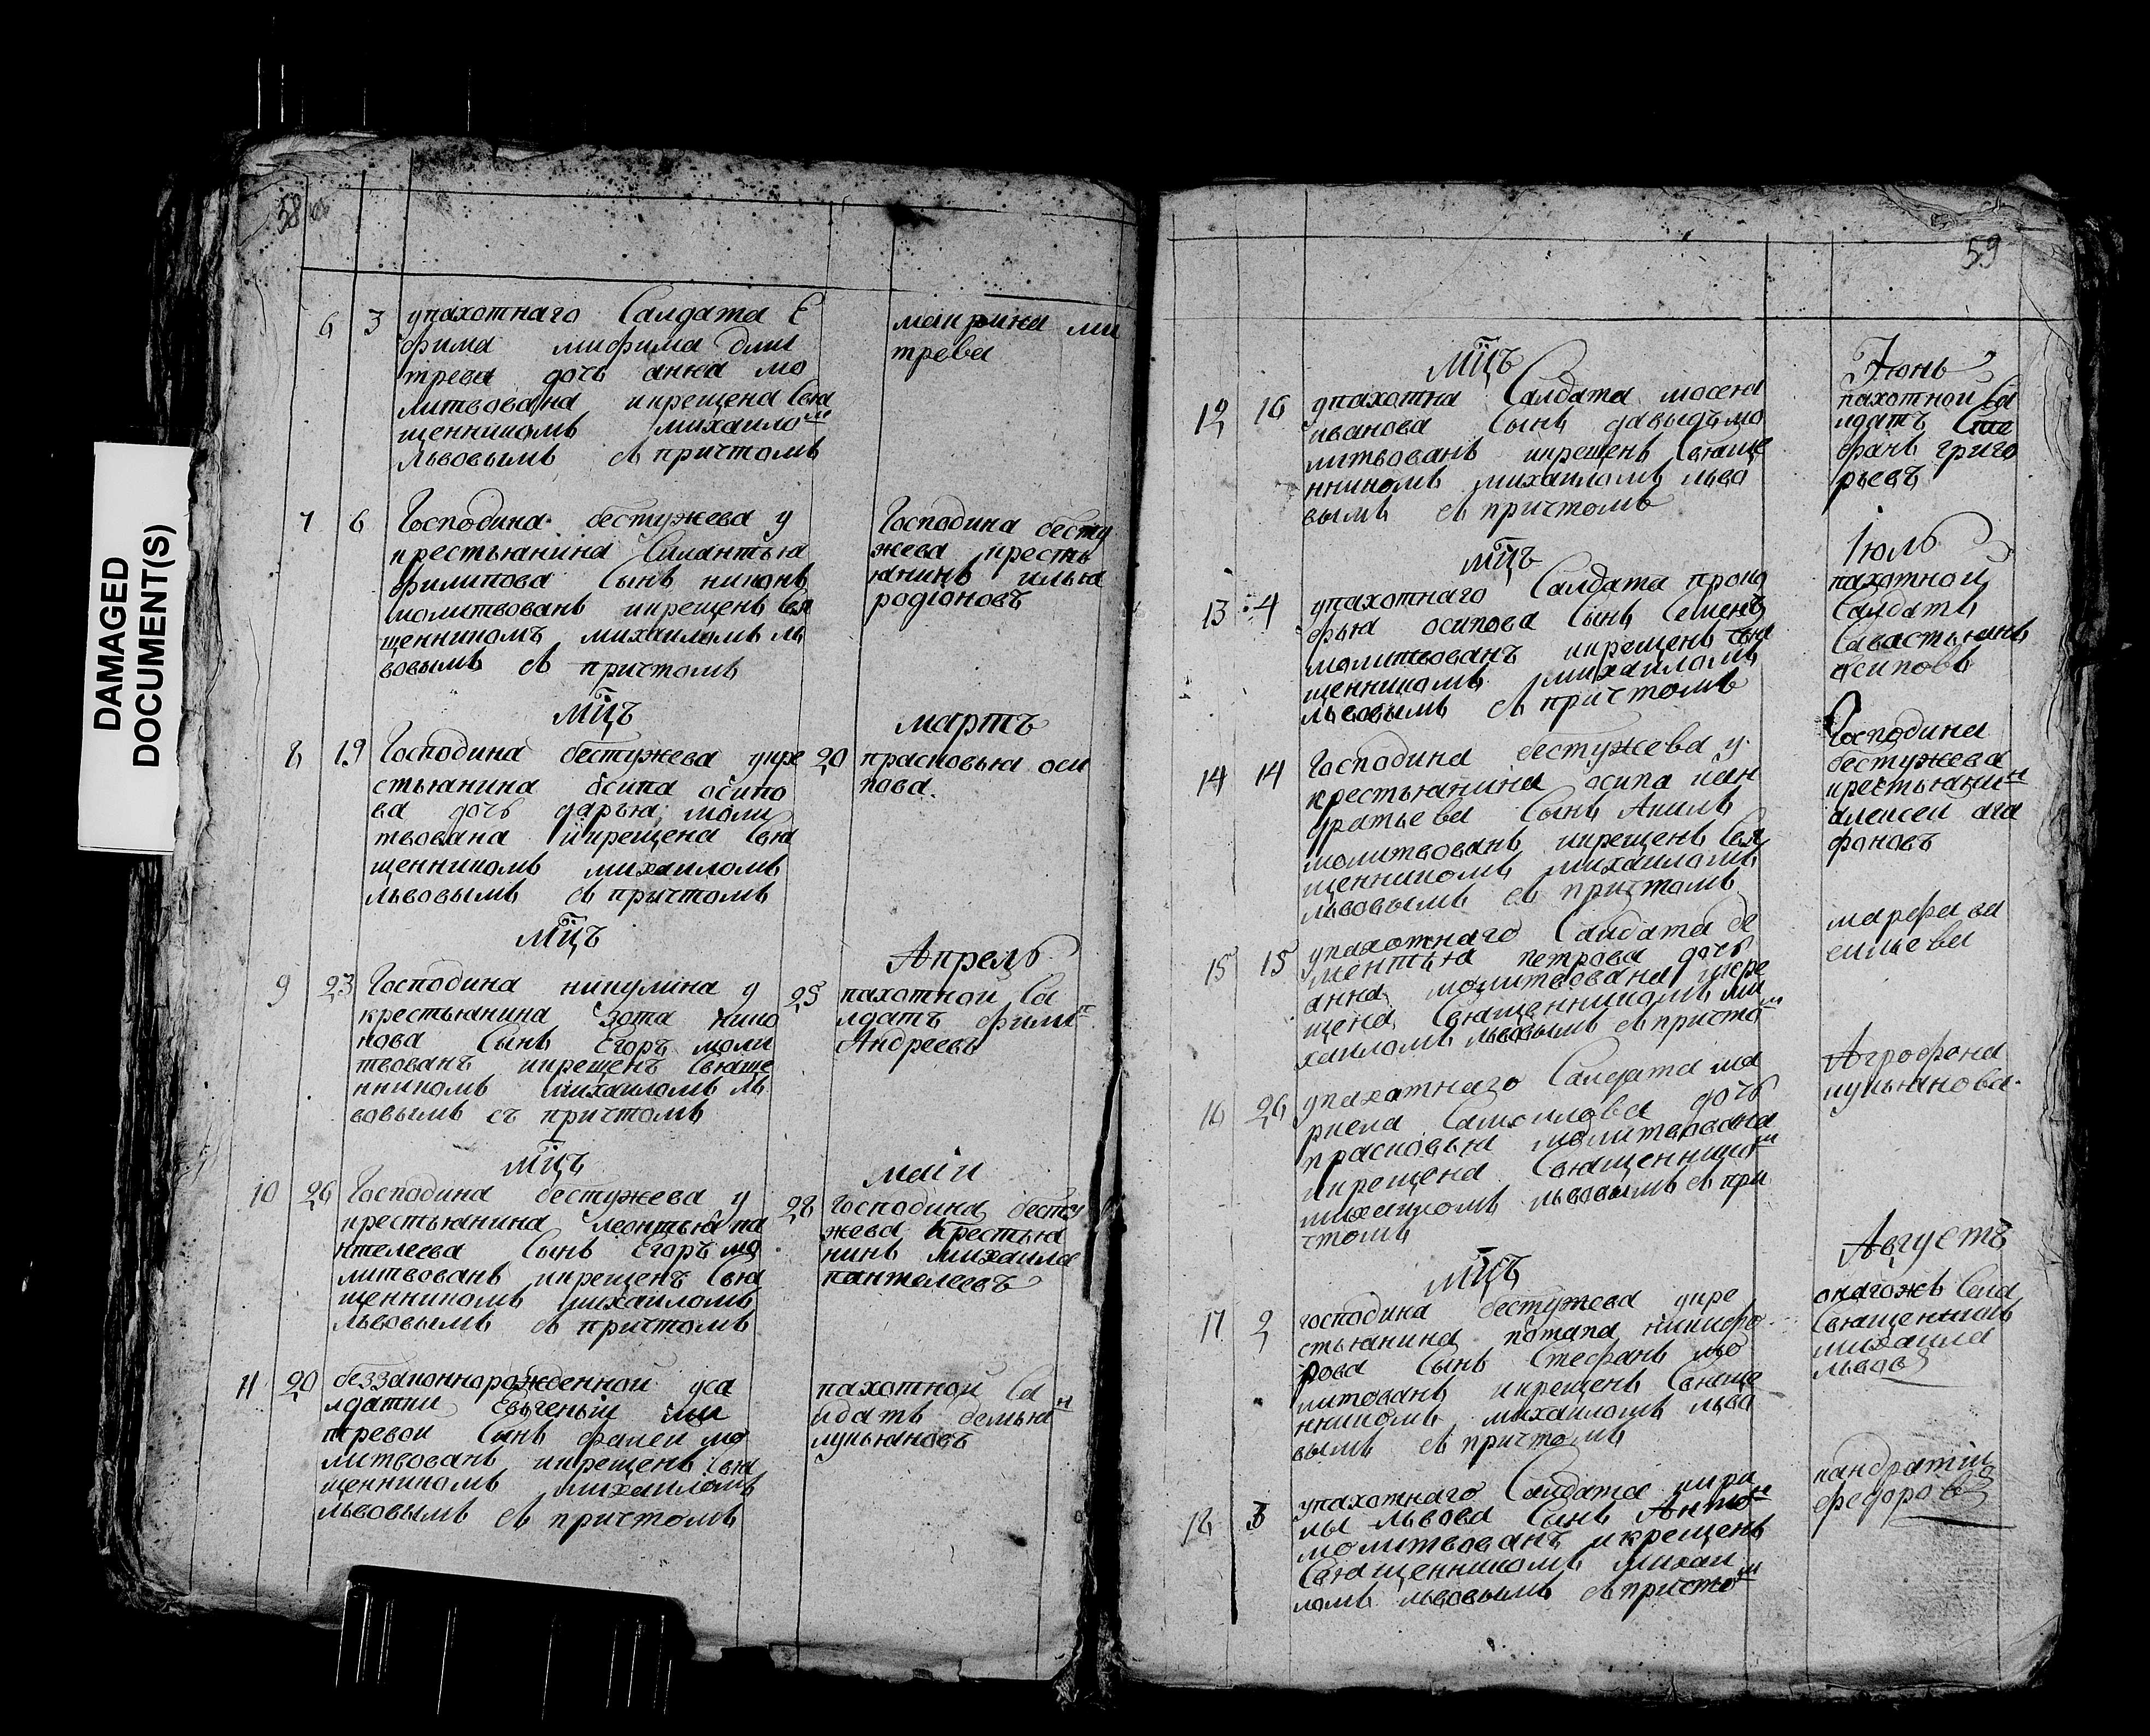 DAMAGED
DOCUMENT(S)
58
6 3 упахотнаго Салдата Е
фима
трева дочь анна мо
литвована икрещена свя
щенникомъ михаило м
львовымъ съ причтомъ
маврина ми
трева
7 6 Господина бестужева у
крестьянина Силантья
филипова сынъ никонъ
молитвованъ икрещенъ свя
щенникомъ михаиломъ ль
вовымъ съ причтомъ
Господина бесту
жева кресть
янинъ илья
родіоновъ
мцъ мартъ
8 19 Господина бестужева укре
стьянина осипа осипо
ва дочь дарья моли
твована икрещена свя
щенникомъ михаиломъ
львовымъ съ причтомъ
20 прасковья оси
пова.
мцъ Апрель
9 23 Господина никулина у
крестьянина Зота нико
нова сынъ Егоръ моли
твованъ икрещенъ свяще
нникомъ михаиломъ ль
вовымъ съ причтомъ
25 пахотной са
лдатъ филип
Андреевъ
мцъ маіи
10 26 Господина бестужева у
крестьянина леонтья па
нтелеева сынъ Егоръ мо
литвованъ икрещенъ свя
щенникомъ михаиломъ
львовымъ съ причтомъ
28 Господина бесту
жева крестья
нинъ михаила
пантелеевъ
11 20 беззаконнорожденной уса
лдатки Евьгеньи ми
тревои сынъ фалеи мо
литвованъ икрещенъ свя
щенникомъ михаиломъ
львовымъ съ причтомъ
пахотной са
лдатъ демьян
лукьяновъ
59
мцъ Іюнь
12 16 упахотна Салдата мосея
иванова сынъ давыдъ мо
литвованъ икрещенъ свяще
нникомъ михаиломъ льво
вымъ съ причтомъ
пахотной са
лдатъ Сте
фанъ григо
рьевъ
мцъ Іюль
13 4 упахотнаго Салдата проко
фья осипова сынъ Семенъ
молитвованъ икрещенъ свя
щенникомъ михаиломъ
львовымъ съ причтомъ
пахотной
Салдатъ
Савастьянъ
осиповъ
14 14 Господина бестужева у
крестьянина осипа кан
дратьева сынъ Акимъ
молитвованъ икрещенъ свя
щенникомъ михаиломъ
львовымъ съ причтомъ
Господина
бестужева
крестьянин
алексеи ага
фоновъ
15 15 упахотнаго Салдата де
ментья петрова дочь
анна молитвована икре
щена священникомъ ми
хаиломъ львовымъ съ причто м
марфа ва
сильева
16 26 упахатнаго Салдата ма
ркела Самоилова дочь
прасковья молитвована
икрещена священнико м
михаиломъ львовымъ съ при
чтомъ
Агрофона
лукьянова.
мцъ Августъ
17 2 господина бестужева укре
стьянина потапа никифо
рова сынъ Стефанъ мо
литованъ икрещенъ свяще
нникомъ михаиломъ льво
вымъ съ причтомъ
онагожъ села
священникъ
михаила
львовъ
18 3 упахотнаго Салдата кири
лы львова сынъ Анто н
молитвованъ икрещенъ
священникомъ михаи
ломъ львовымъ съ причто м
кандратіи
федоровъ